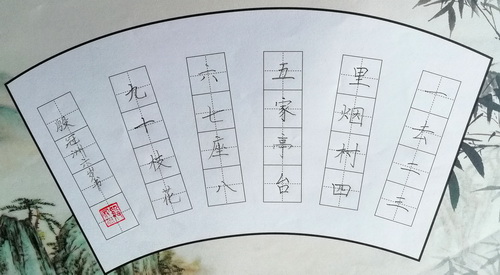 一去二三
里烟村四
五家亭台
六七座八
九十枝花